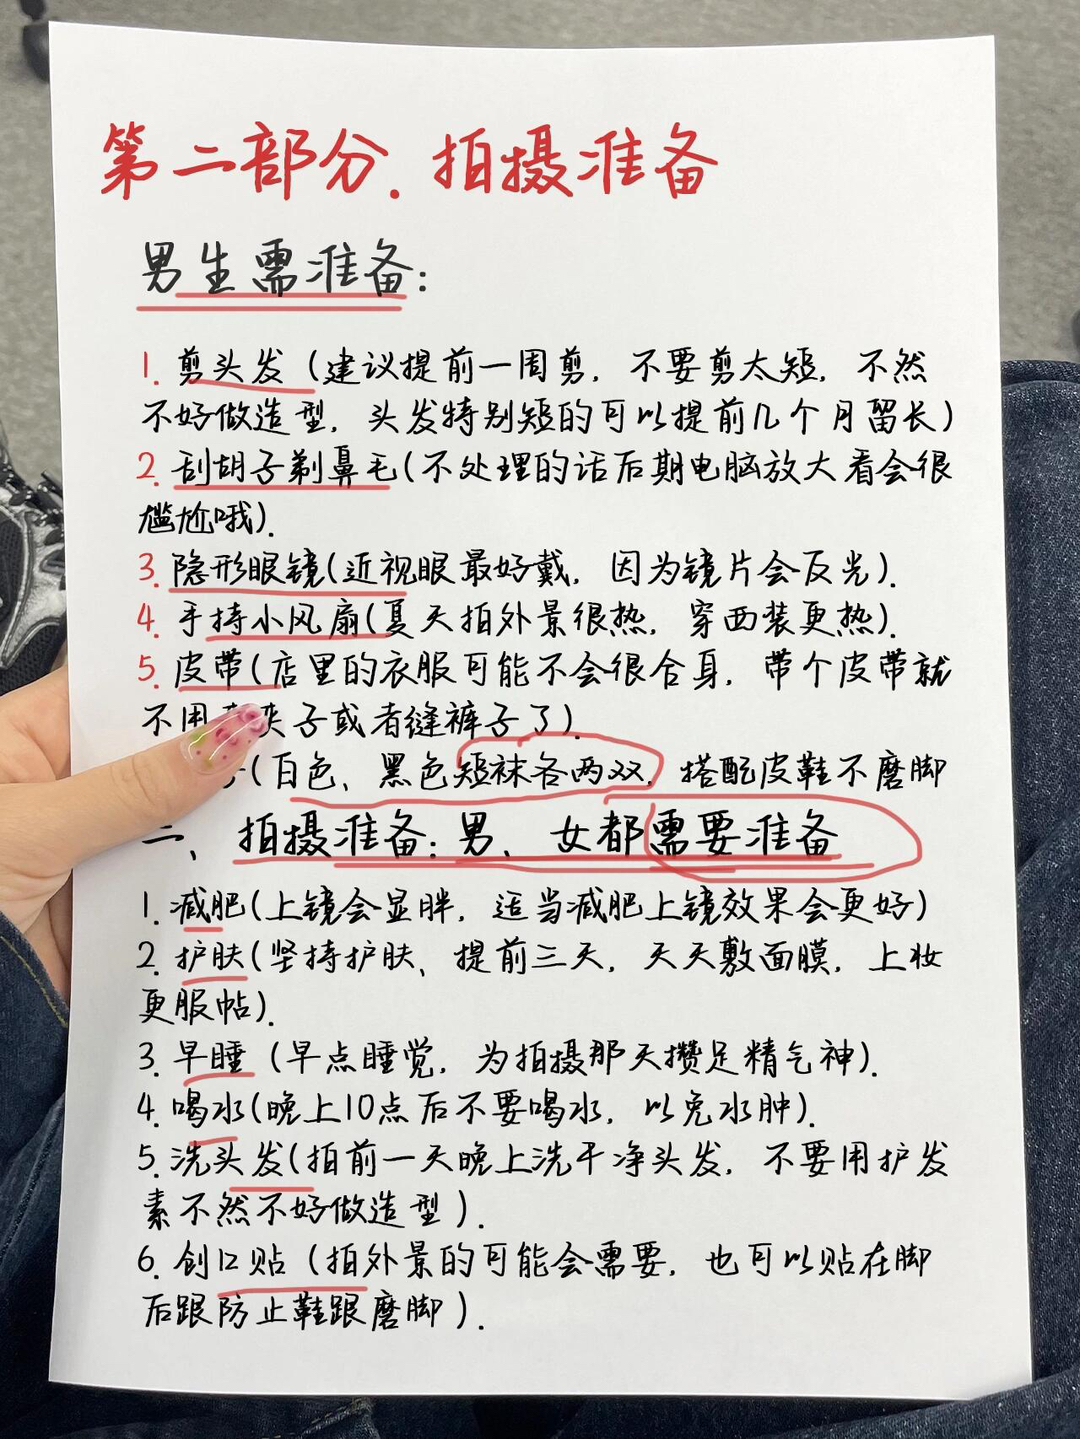 第二部分.拍摄准备
男生需准备:
1.剪头发(建议提前一周剪,不要剪太短,不然
不好做造型,头发特别短的可以提前几个月留长)
2.刮胡子剃鼻毛(不处理的话后期电脑放大看会很
尴尬哦).
3.隐形眼镜(近视眼最好戴,因为镜片会反光).
4.手持小风扇(夏天拍外景很热,穿西装更热).
5.皮带(店里的衣服可能不会很合身,带个皮带就
不用夹子或者缝裤子了).
(白色、黑色短袜各两双,搭配皮鞋不磨脚
二、拍摄准备:男、女都需要准备
1.减肥(上镜会显胖,适当减肥上镜效果会更好)
2.护肤(坚持护肤、提前三天,天天敷面膜,上妆
更服帖).
3.早睡(早点睡觉,为拍摄那天攒足精气神).
4.喝水(晚上10点后不要喝水,以免水肿).
5.洗头发(拍前一天晚上洗干净头发,不要用护发
素不然不好做造型).
6.创口贴(拍外景的可能会需要,也可以贴在脚
后跟防止鞋跟磨脚).